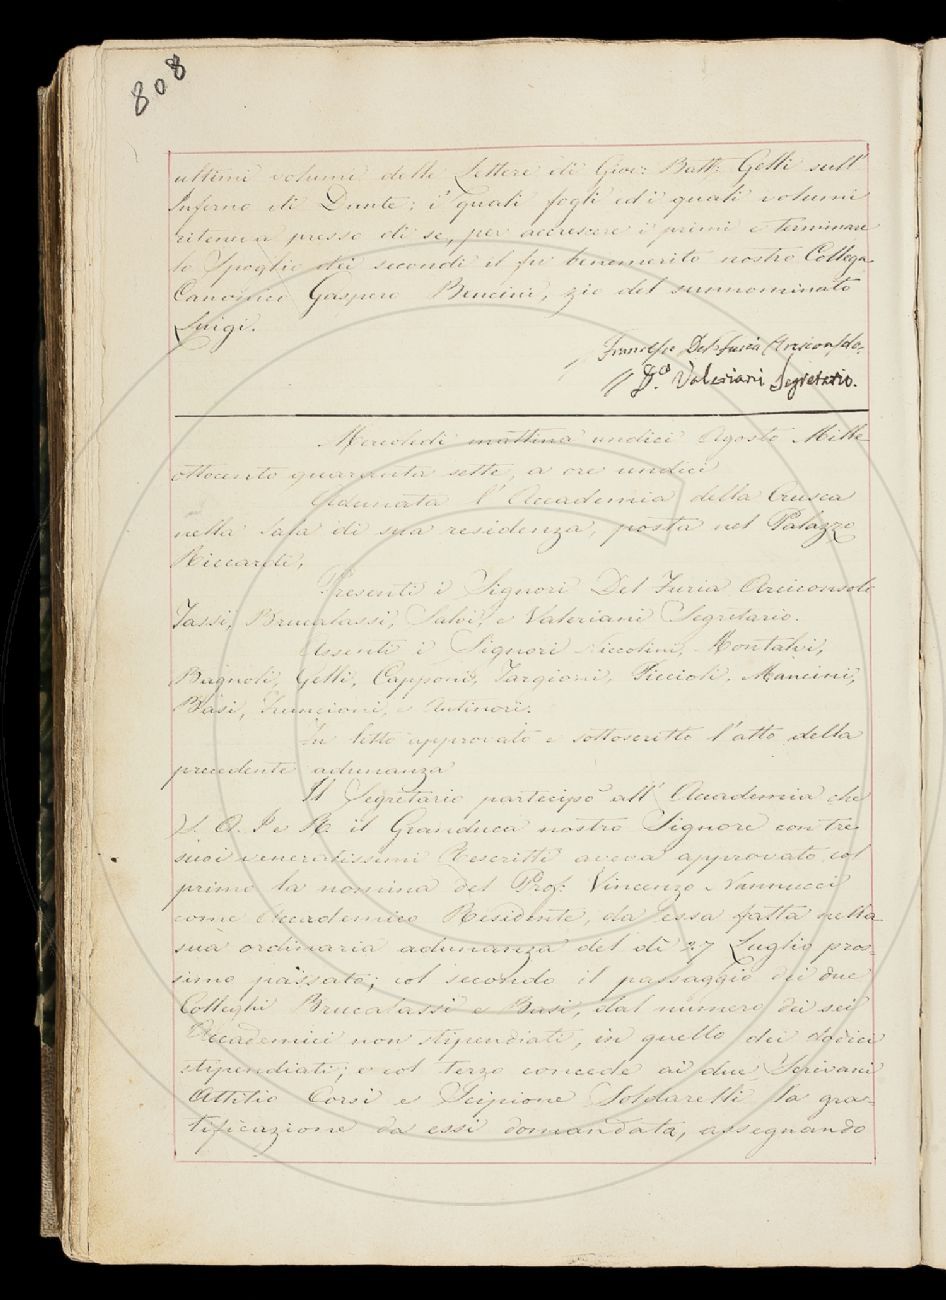 808
ultimi volumi delle Lettere di Giov: Batt: Gelli sull'
Inferno di Dante; i quali fogli ed i quali volumi
riteneva presso di se, per accrescere i primi e terminare
lo Spoglio dei secondi il fu benemerito nostro Collega
Canonico Gaspero Bencini, zio del sunnominato
Luigi.
Francesco Del Furia Arciconsolo.
Valeriani Segretario.
Mercoledì mattina undici Agosto Mille
ottocento quaranta sette, a ore undici
Adunata l'Accademia della Crusca
nella Sala di sua residenza, posta nel Palazzo
Riccardi;
Presenti i Signori Del Furia Arciconsolo
Tassi, Brucalassi, Salvi, e Valeriani Segretario.
Assenti i Signori Niccolini, Montalvi,
Bagnoli, Gelli, Capponi, Targioni, Piccioli, Mancini,
Basi, Francioni, e Antinori.
Fu letto approvato e sottoscritto l'atto della
precedente adunanza
Il Segretario partecipò all'Accademia che
S. A. I e R. il Granduca nostro Signore con tre
suoi veneratissimi Rescritti aveva approvato col
primo la nomina del Prof: Vincenzo Nannucci
come Accademico Residente, da essa fatta nella
sua ordinaria adunanza del dì 27 Luglio pros=
simo passato; col secondo il passaggio dei due
Colleghi Brucalassi e Basi, dal numero dei sei
Accademici non stipendiati, in quello dei dodici
stipendiati; e col terzo concede ai due Scrivani
Attilio Corsi e Scipione Soldarelli la gra=
tificazione da essi domandata, assegnando